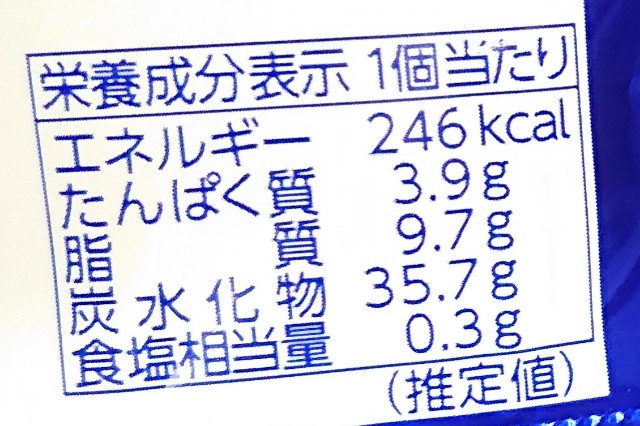 栄養成分表示 1個当たり
エネルギー 246kcal
たんぱく質 3.9g
脂質 9.7g
炭水化物 35.7g
食塩相当量 0.3g
(推定値)